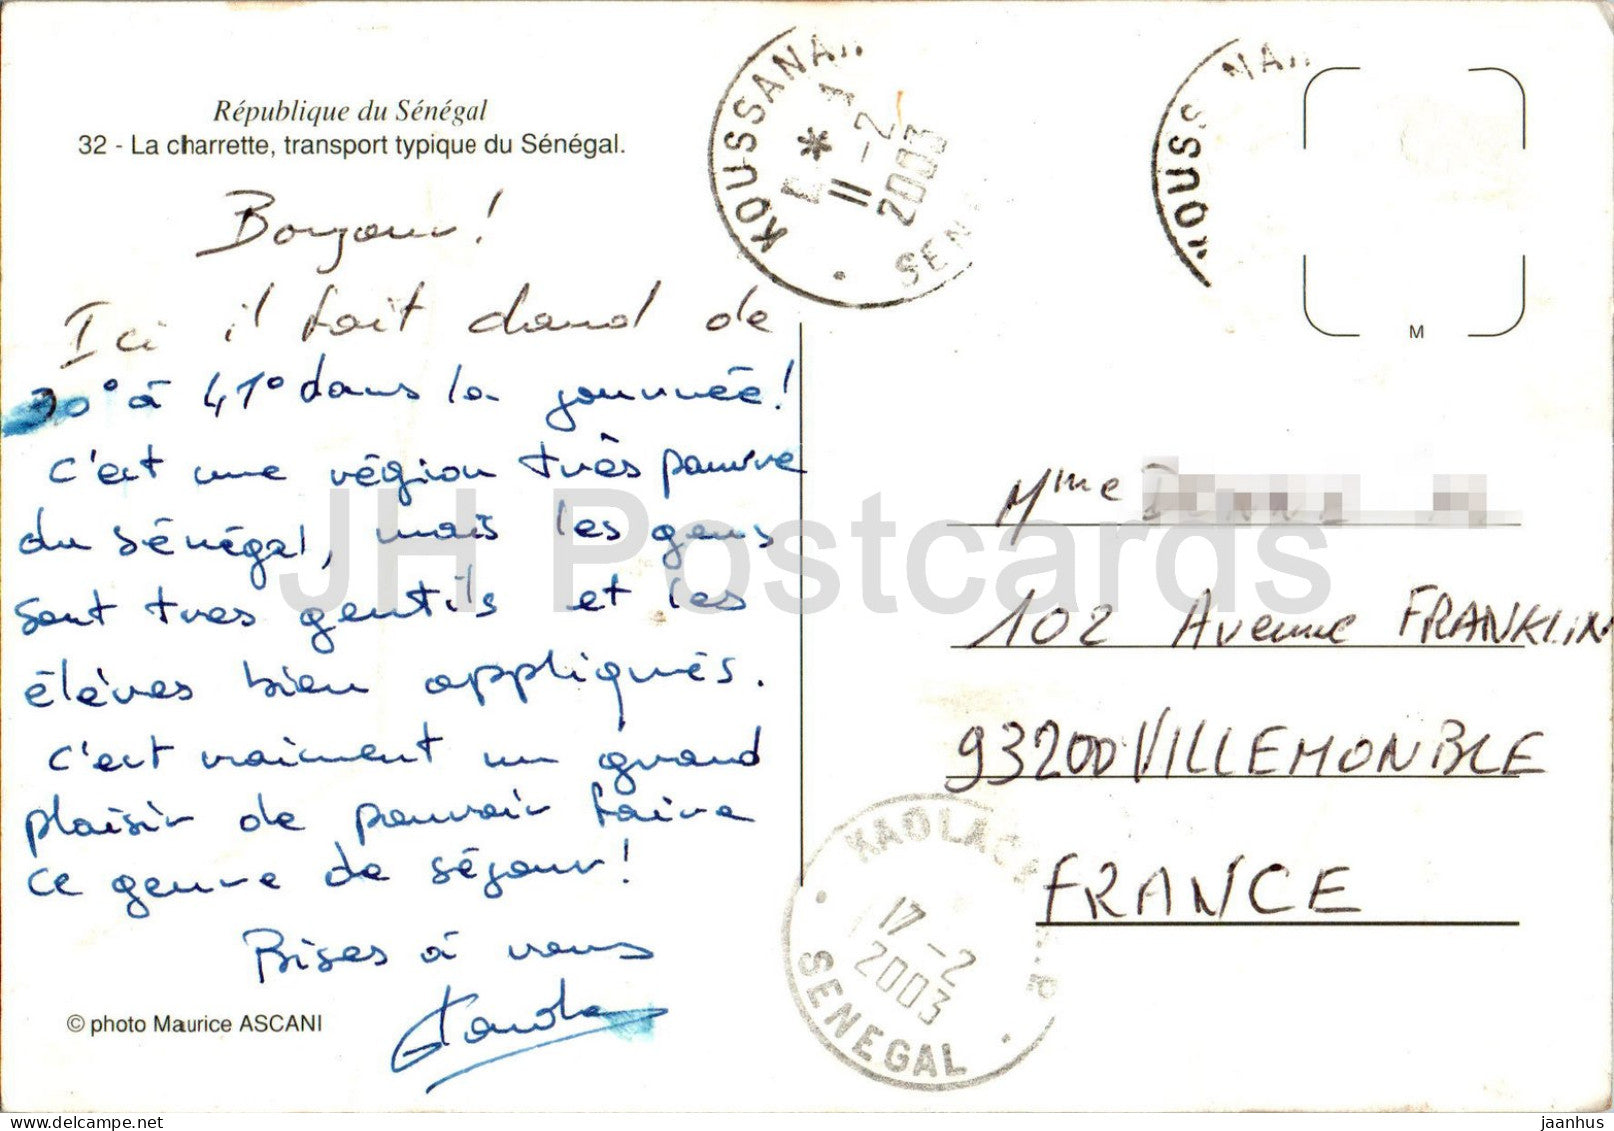 République du Sénégal
32 - La charrette, transport typique du Sénégal.
Bonjour!
Ici il fait chaud de
30° à 41° dans la journée!
C'est une région très pauvre
du Sénégal, mais les gens
sont très gentils et les
élèves bien appliqués.
C'est vraiment un grand
plaisir de pouvoir faire
ce genre de séjour!
Bises à vous
© photo Maurice ASCANI
KOUSSANAR
11 -2
2003
SEN
KOUSS NAR
M
Mme
102 Avenue FRANKLIN
93200 VILLEMONBLE
FRANCE
KAOLACK
17 -2
2003
SENEGAL
JH Postcards
delcampe.net
jaanhus